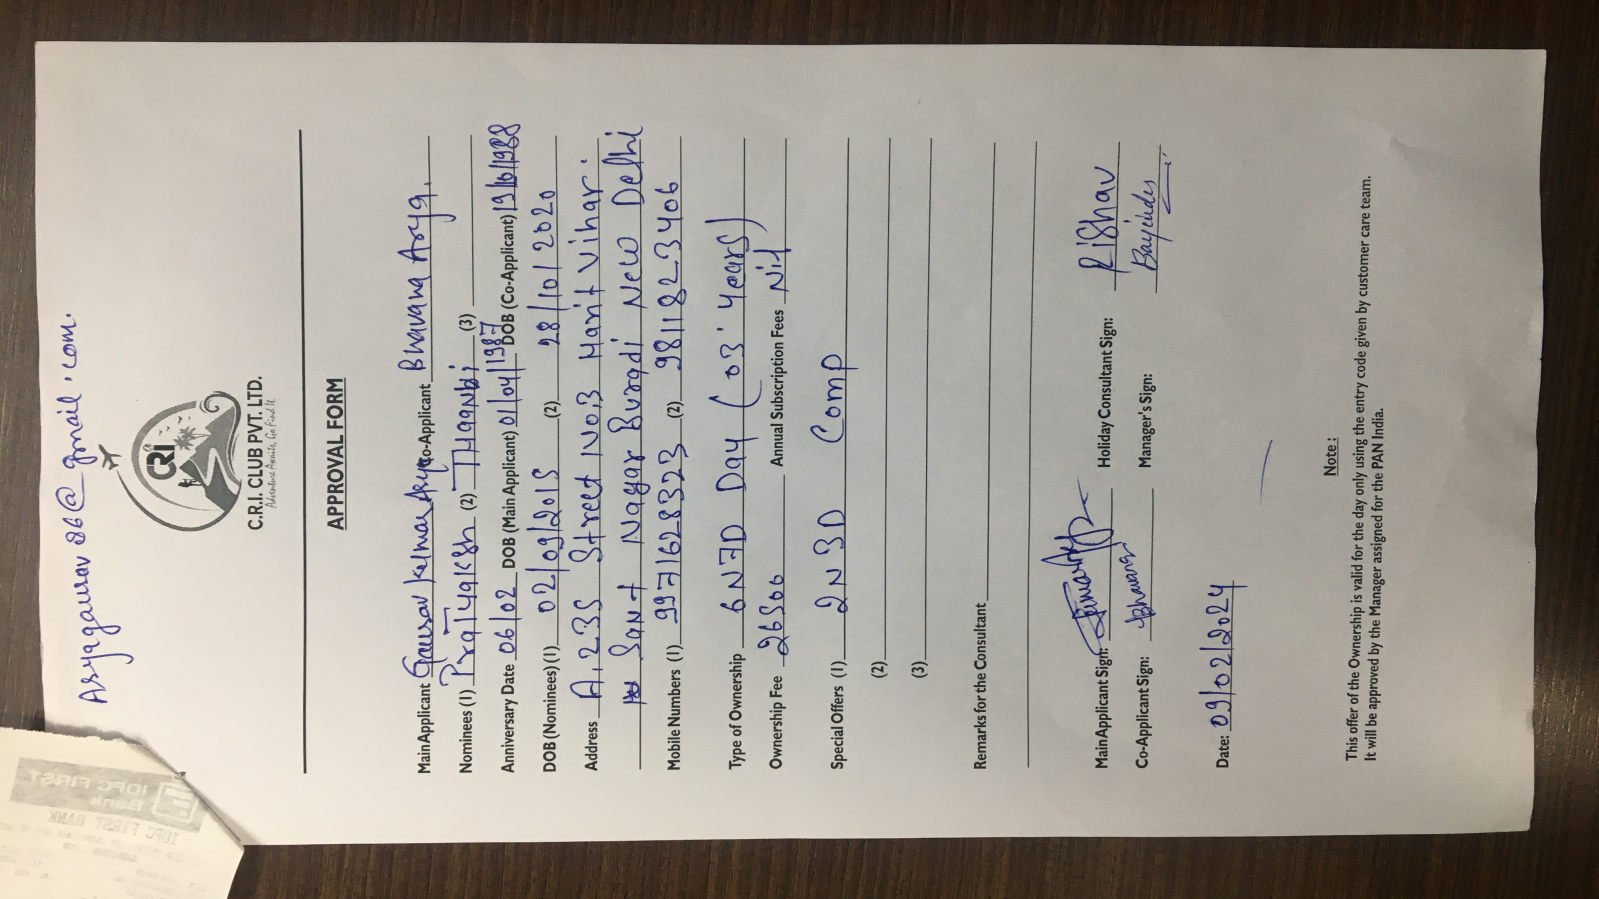 Aryagaurav86@gmail.com.
CRI
C.R.I. CLUB PVT. LTD.
Adventure Awaits, Go Find It.
APPROVAL FORM
Main Applicant Gaurav Kumar Arya Co-Applicant Bhavana Arya.
Nominees (1) PraTyaksh (2) THaanbi (3)
Anniversary Date 06/02 DOB (Main Applicant) 01/04/1987 DOB (Co-Applicant) 19/10/1988
DOB (Nominees) (1) 02/09/2015 (2) 28/10/2020
Address A, 235 Street No,3 Harit Vihar.
Sant Nagar Buradi New Delhi
Mobile Numbers (1) 9971628323 (2) 9811823406
Type of Ownership 6N7D Day (03 Years)
Ownership Fee 26500 Annual Subscription Fees Nil
Special Offers (1) 2N3D Comp
(2)
(3)
Remarks for the Consultant
Main Applicant Sign: Holiday Consultant Sign: Rishav
Co-Applicant Sign: Bhavana Manager's Sign:
Date: 09/02/2024
Note :
This offer of the Ownership is valid for the day only using the entry code given by customer care team.
It will be approved by the Manager assigned for the PAN India.
IDFC FIRST
Bank
IDFC FIRST BANK